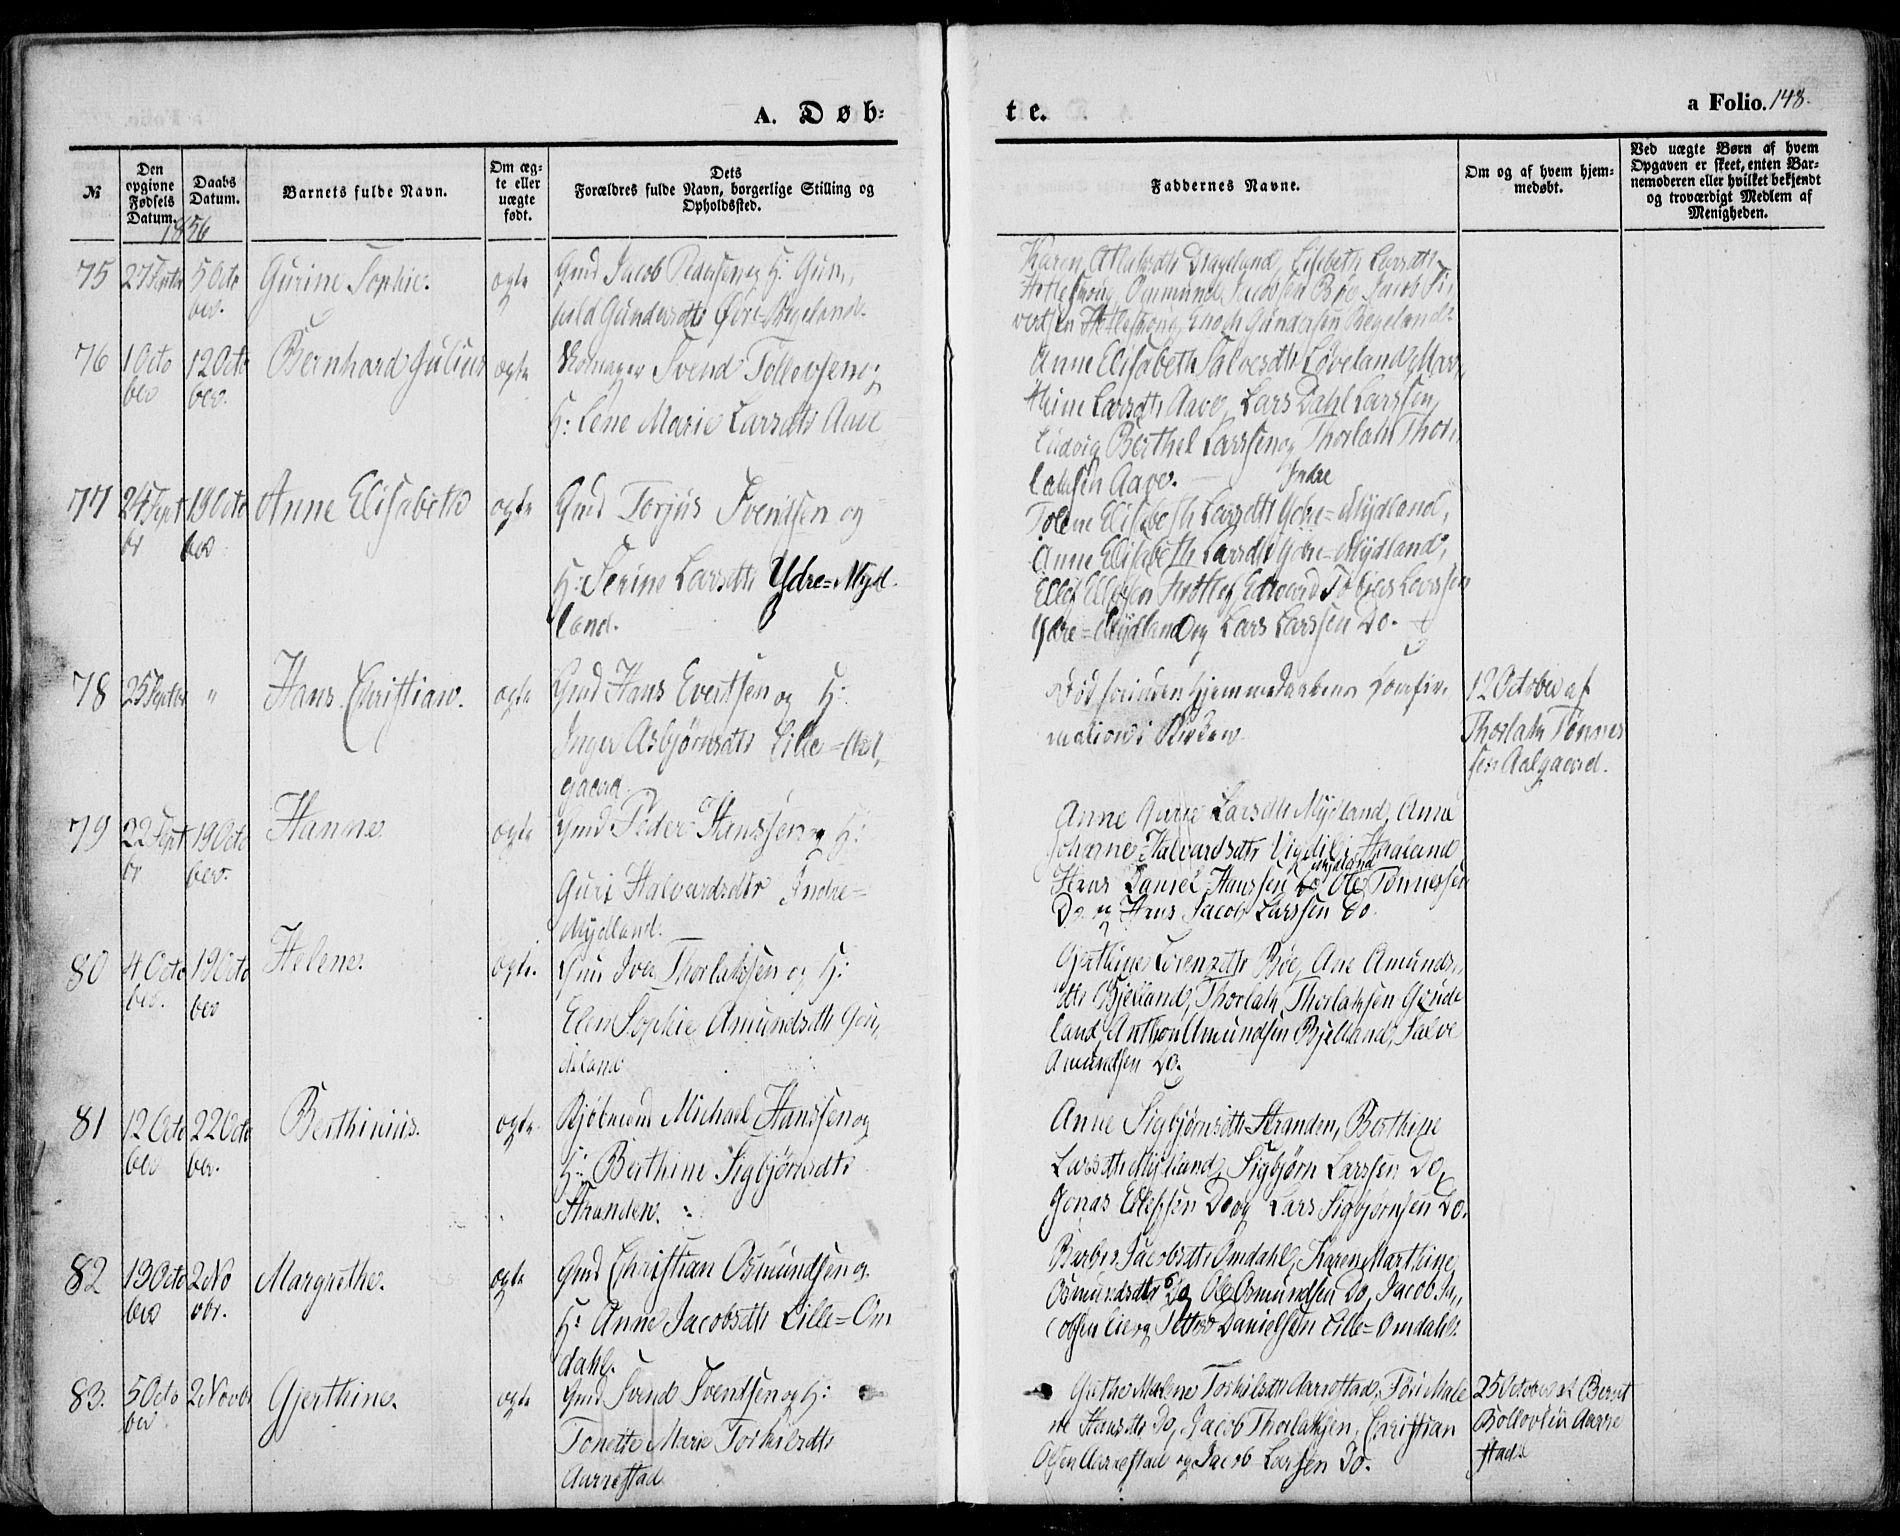 A. Døb-
te.
a Folio. 148.
№
Den opgivne Fødsels Datum.
Daabs Datum.
Barnets fulde Navn.
Om ægte eller uægte født.
Dets Forældres fulde Navn, borgerlige Stilling og Opholdssted.
Faddernes Navne.
Om og af hvem hjemmedøbt.
Ved uægte Børn af hvem Opgaven er skeet, enten Barnemoderen eller hvilket bekjendt og troværdigt Medlem af Menigheden.
1856
75
5 Octo
ber.
Gurine Sophie.
ægte
Gmd Jacob Pedersen og H: Gun,
hild Gundersdtr Øvre Regeland.
Karen Dragland, Lisebeth Larsdtr
Jacobsen Bøe, Jacob Si,
vertsen Enoch Gundersen Regeland.
76
1 Octo
ber
12 Octo
ber.
Bernhard Julius
ægte
Svend Tollevsen og
H: Lene Marie Larsdtr Aave
Anne Elisabeth Salvesdtr Løveland, Mar,
thine Larsdtr Aave, Lars Dahl Larssen,
Ludvig Berthel Larssen og Thorlak Thor,
laksen Aave.
77
24 Sept
br
19 Octo
ber
Anne Elisabeth
ægte
Gmd Torjus Svendsen og
H: Serine Larsdtr Ydre=Myd-
land.
Indre
Tolene Elisabeth Larsdtr Ydre=Mydland,
Anne Elisabeth Larsdtr Ydre=Mydland,
Ellef Ellefsen Tobias Larssen
Ydre=Mydland og Lars Larssen Do.
78
25 Septbr
"
Hans Christian.
ægte
Gmd Hans Evertsen og H:
Inger Asbjørnsdtr Lille=Aal,
gaard.
Død forinden Hjemmedaabens Confir,
mation i Kirken.
12 October af
Thorlak Tønnes
sen Aalgaard.
79
22 Sept
br
19 Octo
ber.
Hanne
ægte
Gmd Peder Hanssen og H:
Guri Halvardsdtr Indre=
Mydland.
Anne Larsdtr Mydland, Anne
Johanne Halvardsdtr
Hans Daniel Hanssen Mydland Ole Tønnessen
Do og Hans Jacob Larssen Do.
80
4 Octo
ber.
19 Octo
ber
Helene.
ægte.
Gmd Iver Thorlaksen og H:
Elen Sophie Amundsdtr Gou,
deland
Gjerthine Lorenzdtr Bøe, Ane Amunds,
dtr Bjelland, Thorlak Thorlaksen Goude
land, Anthon Amundsen Bjelland, Salve
Amundsen Do.
81
12 Octo
ber
22 Octo
ber.
Berthinius.
ægte.
Kjøbmand Michael Hanssen og
H: Berthine Sigbjørnsdtr
Stranden.
Anne Sigbjørnsdtr Stranden, Berthine
Larsdtr Mydland, Sigbjørn Larssen Do,
Jonas Ellefsen Do og Lars Sigbjørnsen Do.
82
19 Octo
ber
2 No
vbr.
Margrethe.
ægte
Gmd Christian Osmundsen og
H: Anne Jacobsdtr Lille=Om
dahl.
Barbro Jacobsdtr Omdahl, Karen Marthine
Osmundsdtr Do, Ole Osmundsen Do, Jacob Ja,,
cobsen Danielsen Lille=Omdahl.
83.
5 Octo
ber
2 Novbr
Gjerthine.
ægte
Gmd Svend Svendsen og H:
Tonette Marie Torkilsdtr
Aarrestad
Malene Torkilsdtr Aarrestad, Male
ne Hansdtr Do, Jacob Thorlaksen, Christian
Olsen Aarrestad og Jacob Larsen Do.
25 October af Bernt
Tollevsen Aarre
stad